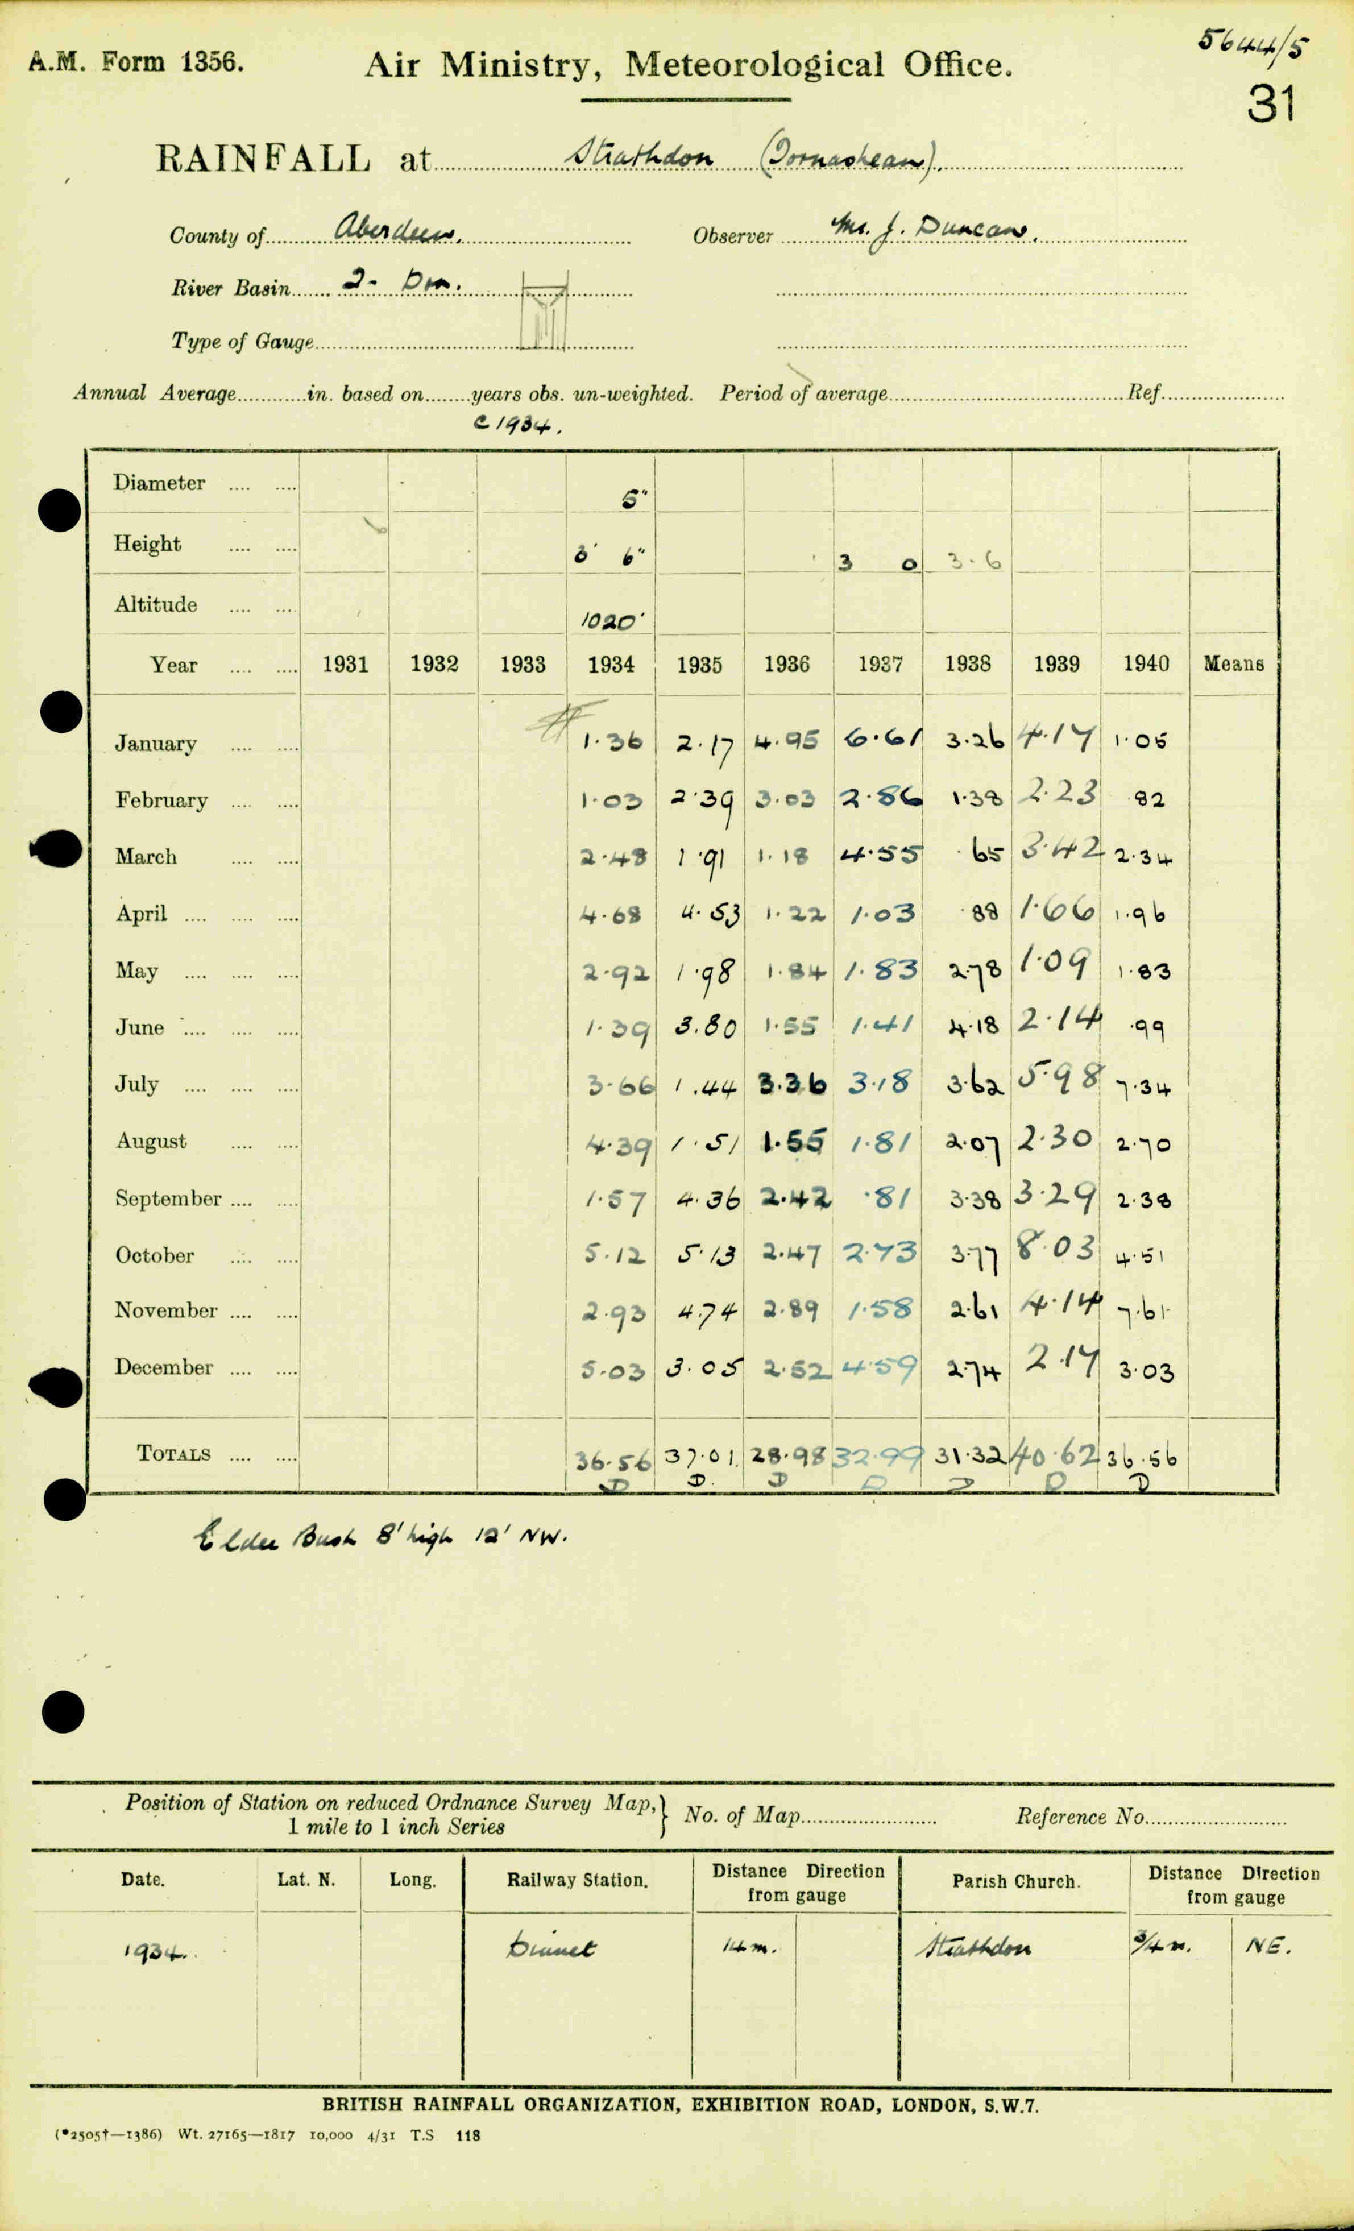 5644/5
A.M. Form 1356. Air Ministry, Meteorological Office.
31
RAINFALL at Strathdon (Tornashean).
County of Aberdeen. Observer Mrs. J. Duncan.
River Basin 2- Don.
Type of Gauge
Annual Average in. based on years obs. un-weighted. Period of average Ref.
C 1934.
Diameter 5"
Height 3' 6" 3 0 3.6
Altitude 1020'
Year 1931 1932 1933 1934 1935 1936 1937 1938 1939 1940 Means
January 1.36 2.17 4.95 6.61 3.26 4.17 1.05
February 1.03 2.39 3.03 2.86 1.38 2.23 .82
March 2.48 1.91 1.18 4.55 .65 3.42 2.34
April 4.68 4.53 1.22 1.03 .88 1.66 1.96
May 2.92 1.98 1.84 1.83 2.78 1.09 1.83
June 1.39 3.80 1.55 1.41 4.18 2.14 .99
July 3.66 1.44 3.36 3.18 3.62 5.98 7.34
August 4.39 1.51 1.55 1.81 2.07 2.30 2.70
September 1.57 4.36 2.42 .81 3.38 3.29 2.38
October 5.12 5.13 2.47 2.73 3.77 8.03 4.51
November 2.93 4.74 2.89 1.58 2.61 4.14 7.61
December 5.03 3.05 2.52 4.59 2.74 2.17 3.03
TOTALS 36.56 37.01 28.98 32.99 31.32 40.62 36.56
D D. D D D D D
Elder Bush 8' high 12' NW.
Position of Station on reduced Ordnance Survey Map, 1 mile to 1 inch Series } No. of Map Reference No.
Date. Lat. N. Long. Railway Station. Distance Direction from gauge Parish Church. Distance Direction from gauge
1934. Dinnet 14m. Strathdon 3/4 m. NE.
BRITISH RAINFALL ORGANIZATION, EXHIBITION ROAD, LONDON, S.W.7.
(*2505†—1386) Wt. 27165—1817 10,000 4/31 T.S 118